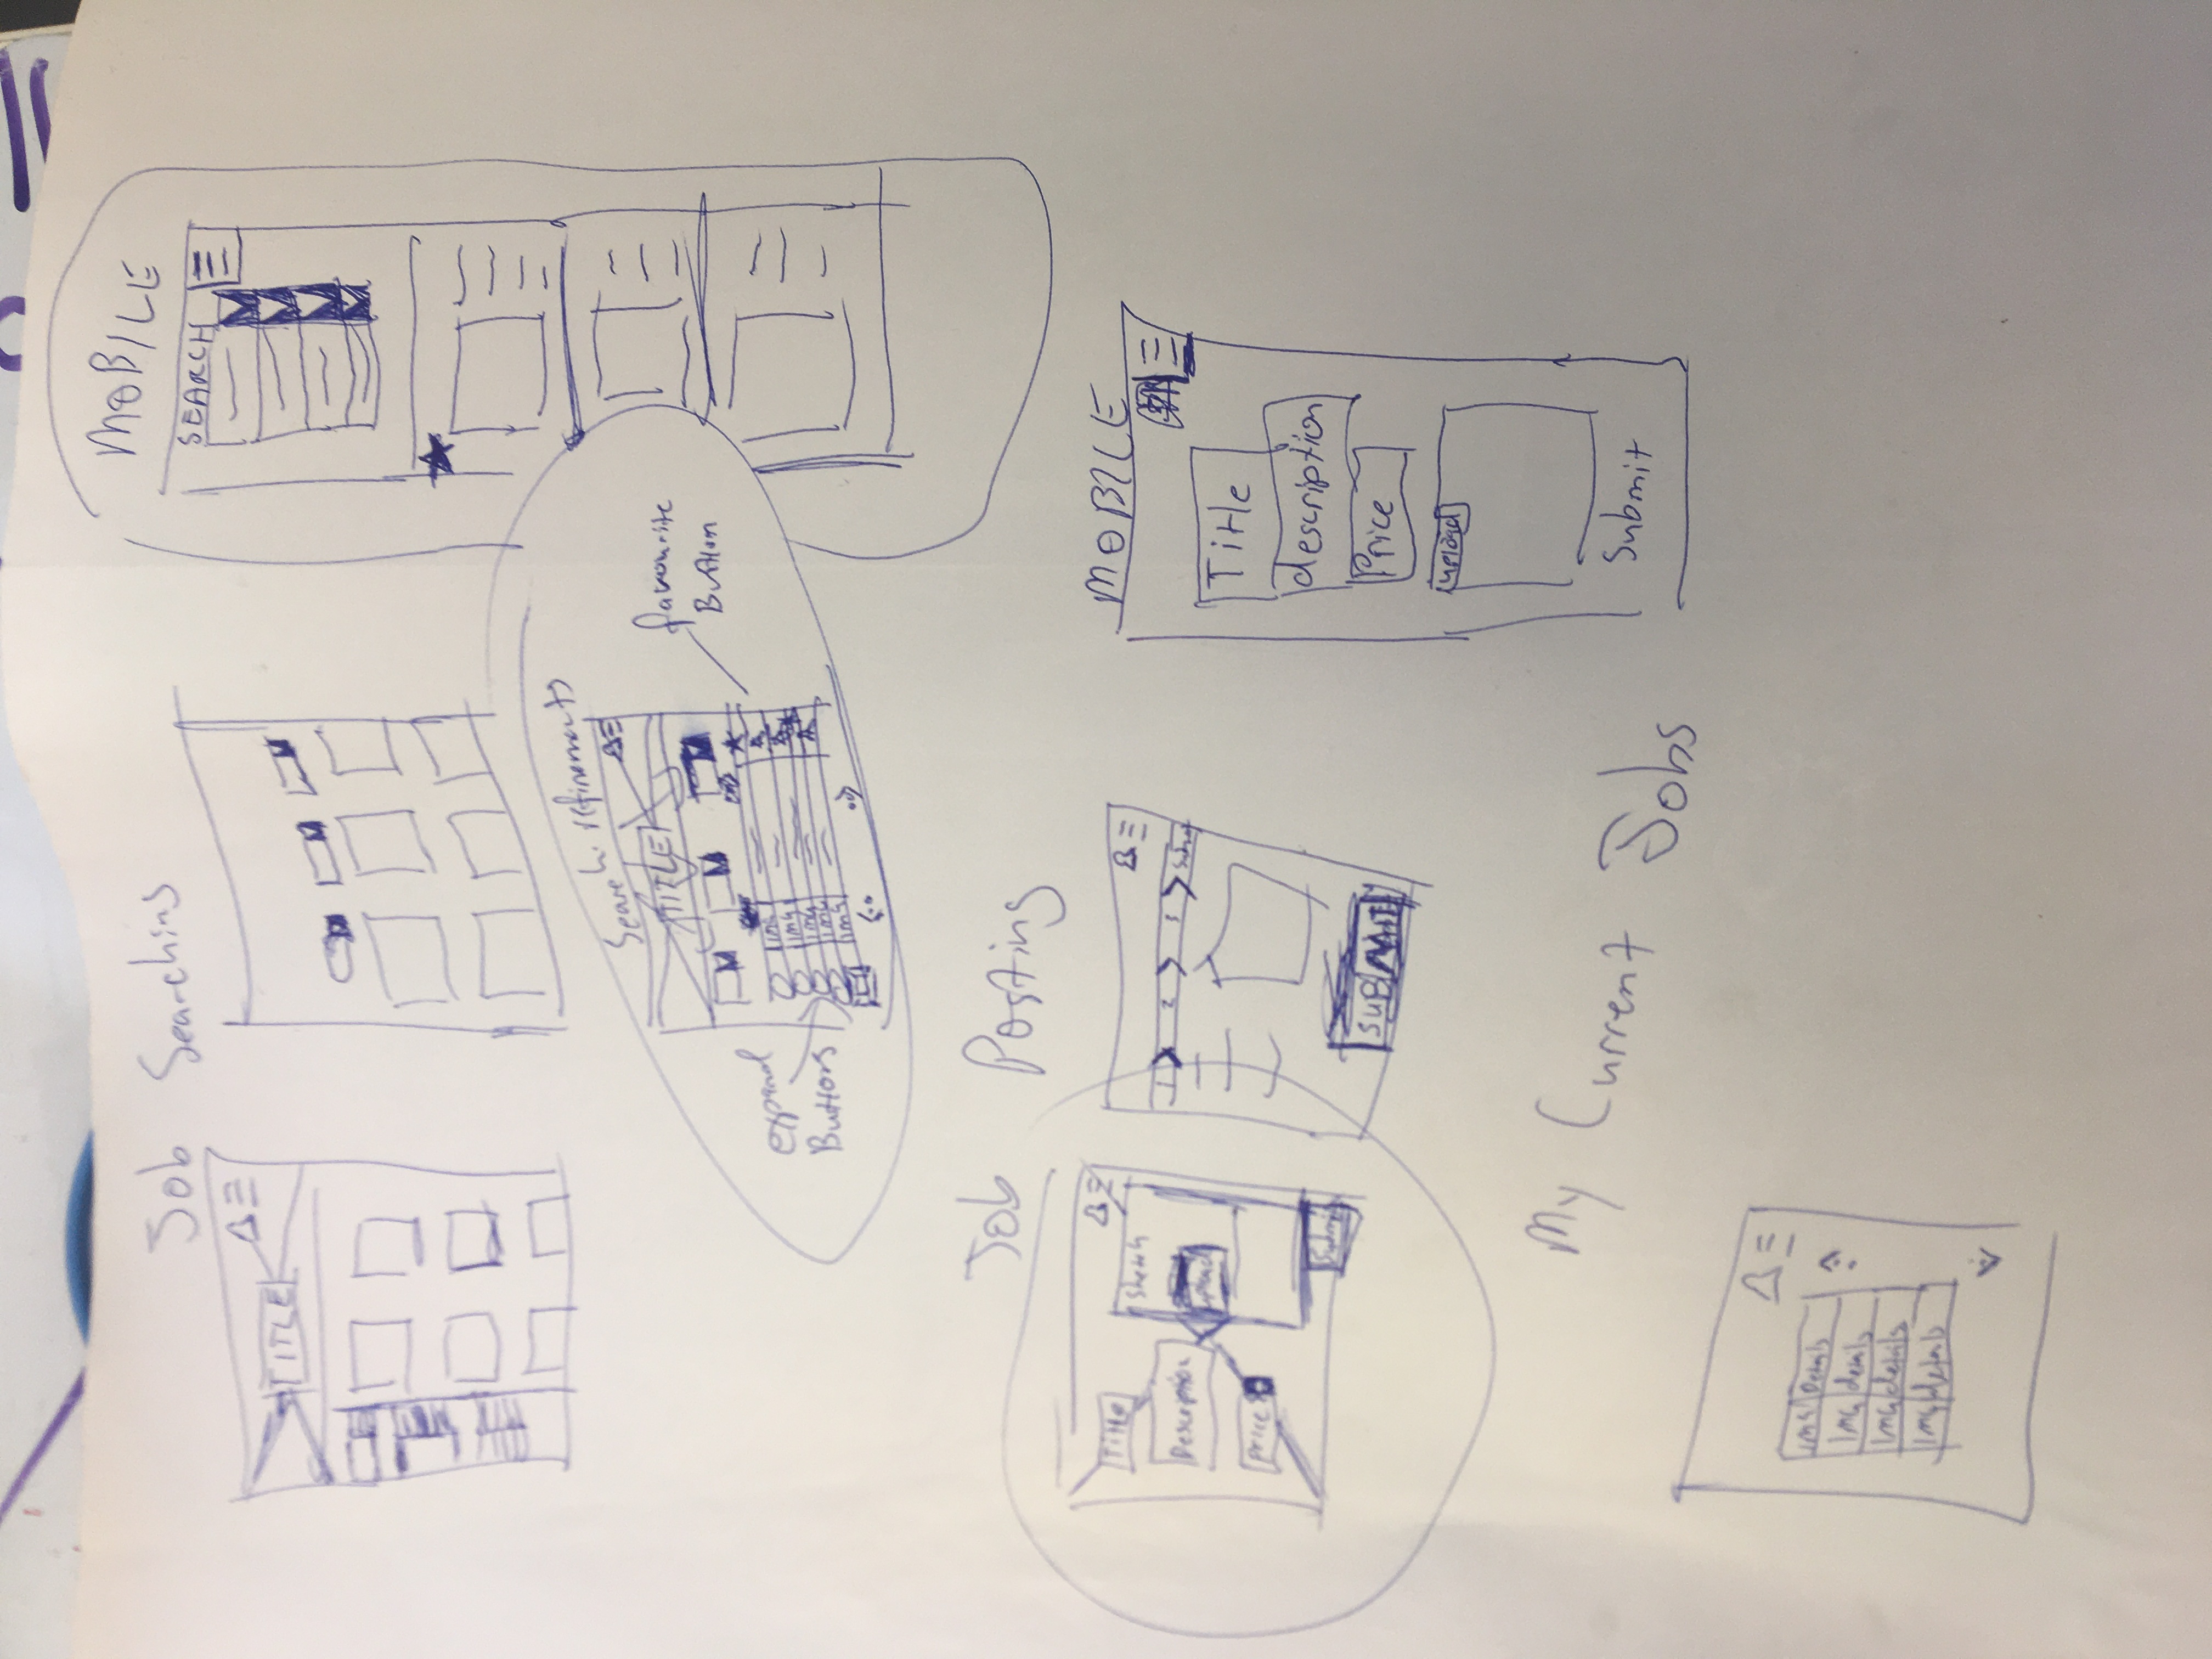 Job Searching
MOBILE
SEARCH
TITLE
Search refinements
TITLE
favourite
Button
expand
Buttons
img
img
img
img
img
Job Posting
MOBILE
Title
Sketch
Description
upload
price
Submit
1 2 3 Submit
SUBMIT
Title
description
Price
upload
Submit
My Current Jobs
img Details
img details
img details
img details